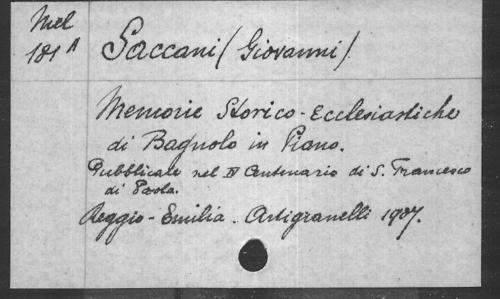 Mel
181 A
Saccani (Giovanni).
Memorie Storico-Ecclesiastiche
di Bagnolo in Piano.
Pubblicate nel IV Centenario di S. Francesco
di Paola.
Reggio-Emilia. Artigianelli 1907.